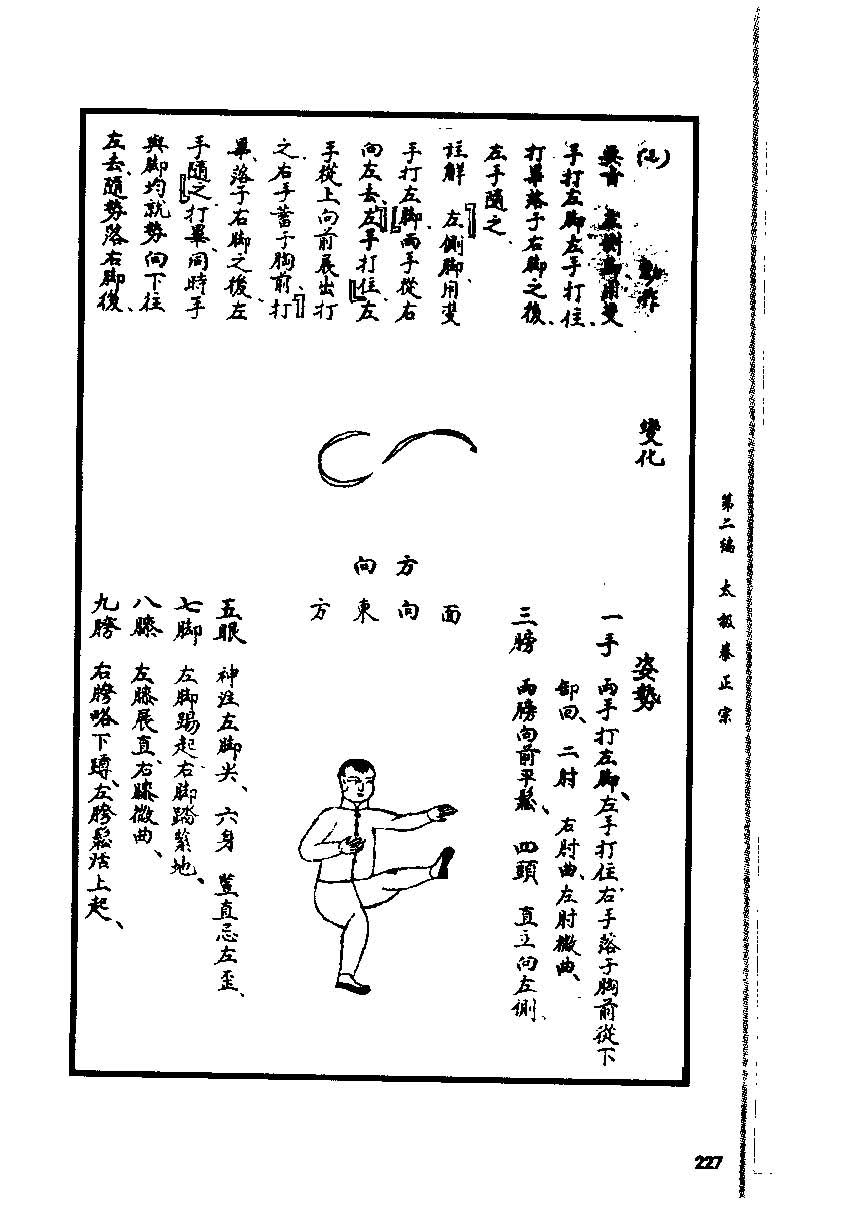 (七) 動作
要言 左側脚用雙
手打左脚左手打住、
打畢落于右脚之後、
左手隨之、
註解 左側脚、用雙
手打左脚、兩手從右
向左去、左手打住、左
手從上向前展出打
之、右手蓄于胸前、打
畢、落于右脚之後、左
手隨之、打畢、同時手
與脚均就勢向下往
左去、隨勢落右脚後、
變化
方向
面向東方
姿勢
一手 兩手打左脚、左手打住、右手落于胸前從下
卸回、二肘 右肘曲、左肘微曲、
三膀 兩膀向前平鬆、四頭 直立向左側、
五眼 神注左脚尖、六身 豎直忌左歪、
七脚 左脚踢起、右脚踏緊地、
八膝 左膝展直、右膝微曲、
九胯 右胯略下蹲、左胯鬆活上起、
第二编 太极拳正宗
227